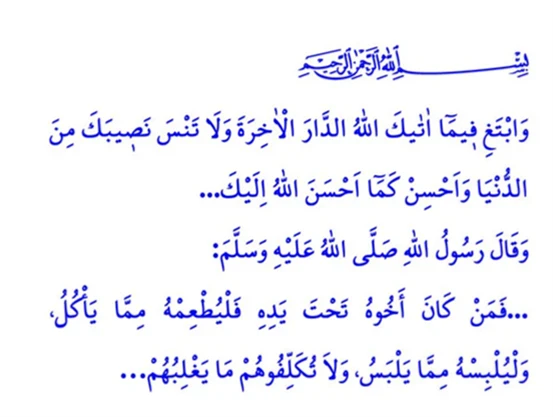 بِسْمِ اللهِ الرَّحْمٰنِ الرَّحِيمِ
وَابْتَغِ ف۪يمَٓا اٰتٰيكَ اللهُ الدَّارَ الْاٰخِرَةَ وَلَا تَنْسَ نَص۪يبَكَ مِنَ
الدُّنْيَا وَاَحْسِنْ كَمَٓا اَحْسَنَ اللهُ اِلَيْكَ...
وَقَالَ رَسُولُ اللهِ صَلَّى اللهُ عَلَيْهِ وَسَلَّمَ:
...فَمَنْ كَانَ أَخُوهُ تَحْتَ يَدِهِ فَلْيُطْعِمْهُ مِمَّا يَأْكُلُ،
وَلْيُلْبِسْهُ مِمَّا يَلْبَسُ، وَلاَ تُكَلِّفُوهُمْ مَا يَغْلِبُهُمْ...